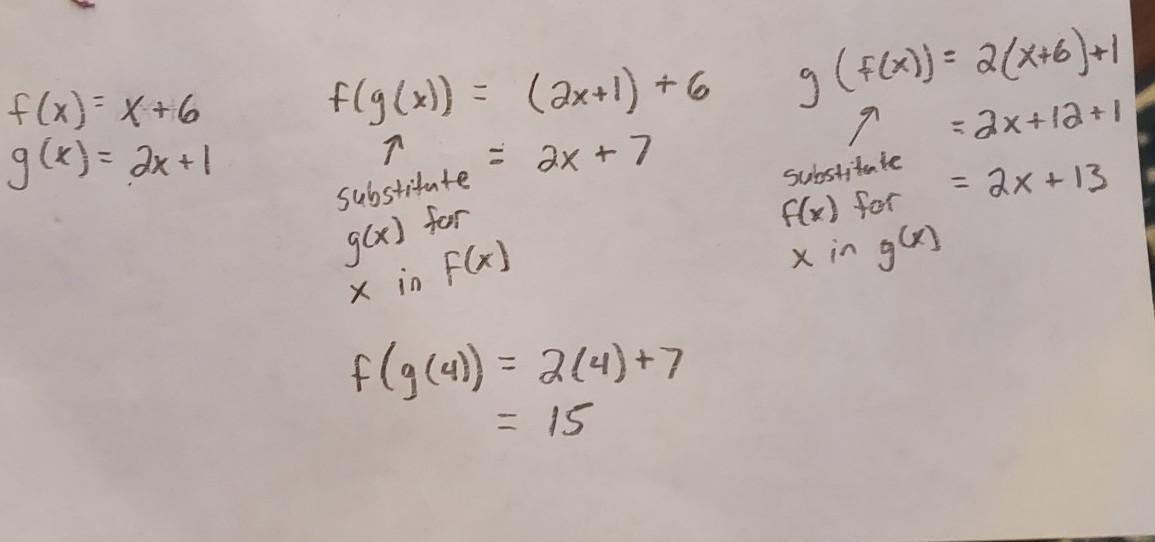 f(x) = x+6
g(x) = 2x+1
f(g(x)) = (2x+1) + 6
= 2x + 7
↑
substitute
g(x) for
x in f(x)
f(g(4)) = 2(4)+7
= 15
g(f(x)) = 2(x+6)+1
= 2x+12+1
= 2x+13
↑
substitute
f(x) for
x in g(x)